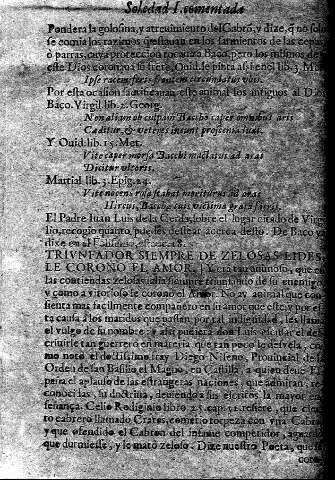 Soledad I. comentada
Pondera la golosina, y atreuimiento del Cabrō, y dize, q̃ no solo
se comia los razimos q̃ estauan en los sarmientos de las cepas
o parras, cuya proteccion toca a Baco, pero los mismos de
este Dios coronan su frente. Ouid. le pinta assi en el lib. 3. Met.
Ipse racemiferis frontem circundatus vuis.
Por esta ocasion sacrificauan este animal los antiguos al Dios
Baco. Virgil. lib. 2. Georg.
Non aliam ob culpam Baccho caper omnibus aris
Cæditur, & veteres ineunt proscenia ludi.
Y Ouid. lib. 15. Met.
Vite caper morsa Bacchi mactatus ad aras
Dicitur vltoris.
Martial lib. 3. Epig. 24.
Vite nocens rosa stabat moriturus ad aras
Hircus, Bacche, tuis victima grata sacris.
El Padre Iuan Luis de la Cerda, sobre el lugar citado de Virgi-
lio, recogio quanto puedes dessear acerca desto. De Baco ya
dixe en el
TRIVNFADOR SIEMPRE DE ZELOSAS LIDES
LE CORONO EL AMOR.
las contiendas zelosas salia siempre triunfando de su enemigo,
y como a vitorioso le corono el Amor. No ay animal que con-
sienta mas facilmente compañero en su amor que este, y por es-
ta causa a los maridos que passan por tal indignidad, les llama
el vulgo de su nombre; y assi pudiera don Luis escusar el des-
criuirle tan guerrero en materia que tan poco le desvela, co-
mo notò el doctissimo fray Diego Niseno, Prouincial de la
Orden de san Basilio el Magno, en Castilla, a quien deue Es-
paña el aplauso de las estrangeras naciones, que admiran, re-
conocidas, su doctrina, deuiendo a sus escritos la mayor en-
señança. Celio Rodiginio lib. 25. cap. 32. refiere, que cier-
to cabrero llamado Crates, cometio torpeza con vna Cabra,
y que ofendido el Cabron del infame competidor, aguardò
que durmiesse, y le matò zeloso. Dize nuestro Poeta, que
coro-